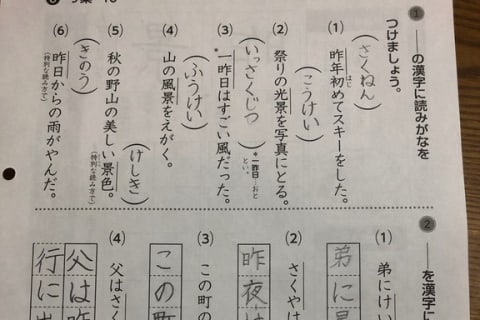 1 ーーの漢字に読みがなを
つけましょう。
(1) 昨年初めてスキーをした。
はじ
(さくねん)
(2) 祭りの光景を写真にとる。
(こうけい)
(3) *一昨日はすごい風だった。
(いっさくじつ)
*一昨日…おととい。
(4) 山の風景をえがく。
(ふうけい)
(5) 秋の野山の美しい景色。
(特別な読み方で)
(けしき)
(6) 昨日からの雨がやんだ。
(特別な読み方で)
(きのう)
2 ーーを漢字に
(1) 弟にけい
弟に
(2) さくやは
昨夜は
(3) この町の
この町
(4) 父はさく
父は昨
行に